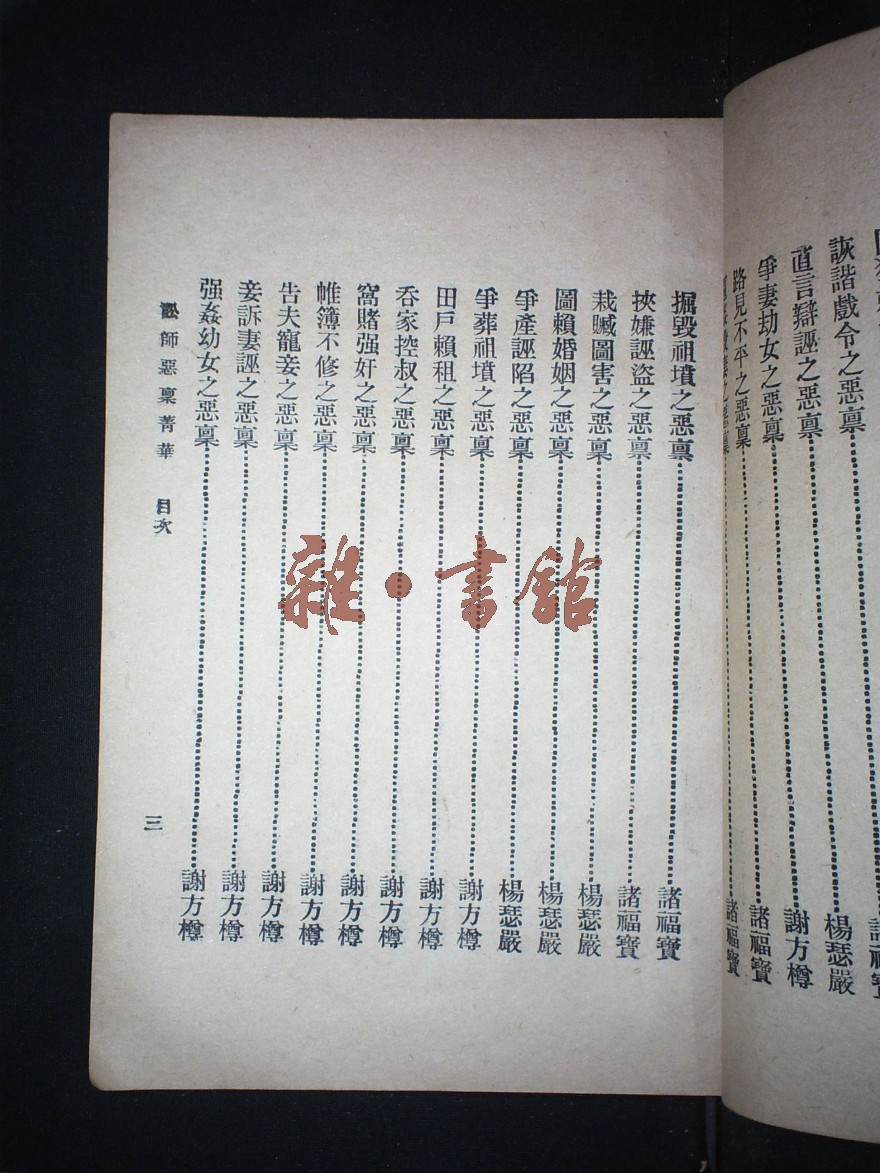 詼諧戲令之惡禀……楊瑟嚴
直言辯誣之惡禀……謝方樽
爭妻劫女之惡禀……諸福寶
路見不平之惡禀……諸福寶
掘毀祖墳之惡禀……諸福寶
挾嫌誣盜之惡禀……諸福寶
栽贓圖害之惡禀……楊瑟嚴
圖賴婚姻之惡禀……楊瑟嚴
爭產誣陷之惡禀……楊瑟嚴
爭葬祖墳之惡禀……謝方樽
田戶賴租之惡禀……謝方樽
吞家控叔之惡禀……謝方樽
窩賭强奸之惡禀……謝方樽
帷簿不修之惡禀……謝方樽
告夫寵妾之惡禀……謝方樽
妾訴妻誣之惡禀……謝方樽
强姦幼女之惡禀……謝方樽
訟師惡稟菁華 目次 三
雜·書館